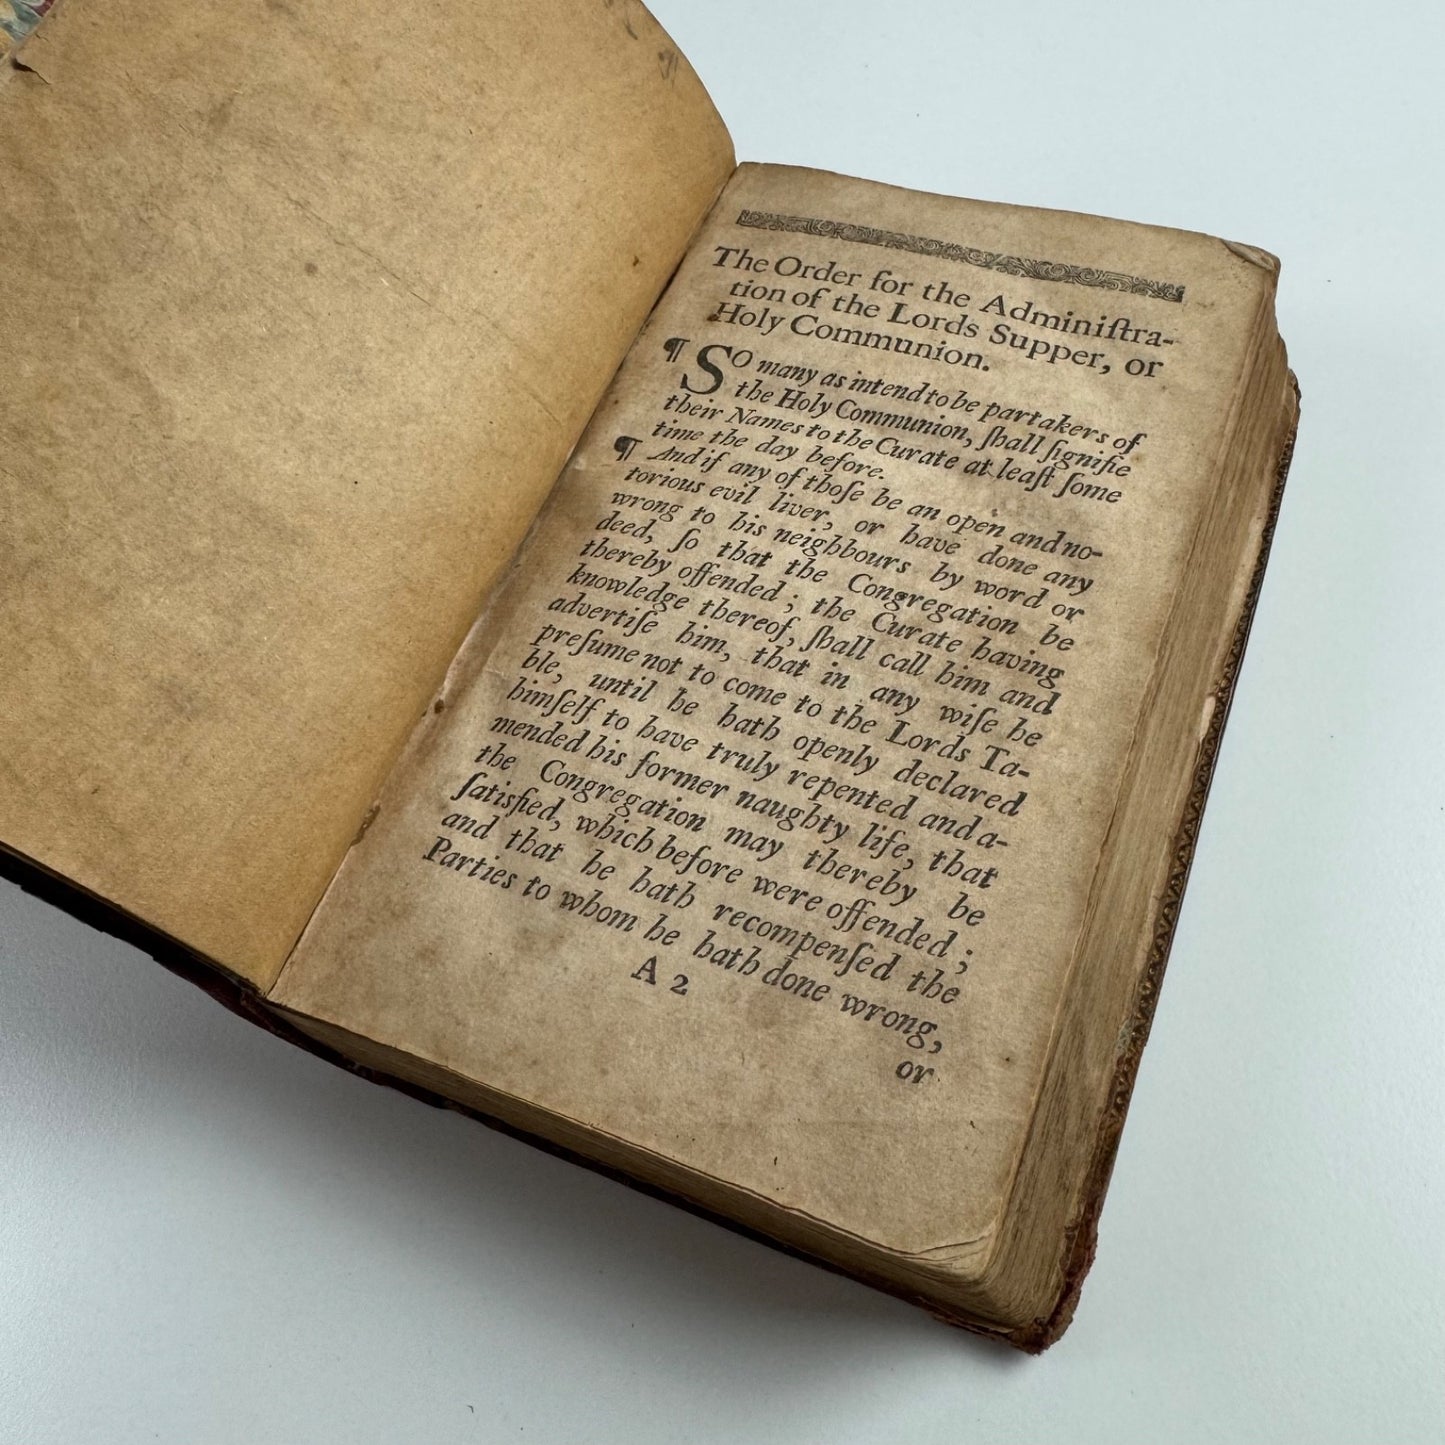 The Order for the Adminiſtra-
tion of the Lords Supper, or
Holy Communion.
¶ SO many as intend to be partakers of
the Holy Communion, ſhall ſignifie
their Names to the Curate at leaſt ſome
time the day before.
¶ And if any of thoſe be an open and no-
torious evil liver, or have done any
wrong to his neighbours by word or
deed, ſo that the Congregation be
thereby offended; the Curate having
knowledge thereof, ſhall call him and
advertiſe him, that in any wiſe he
preſume not to come to the Lords Ta-
ble, until he hath openly declared
himſelf to have truly repented and a-
mended his former naughty life, that
the Congregation may thereby be
ſatisfied, which before were offended;
and that he hath recompenſed the
Parties to whom he hath done wrong,
A 2
or